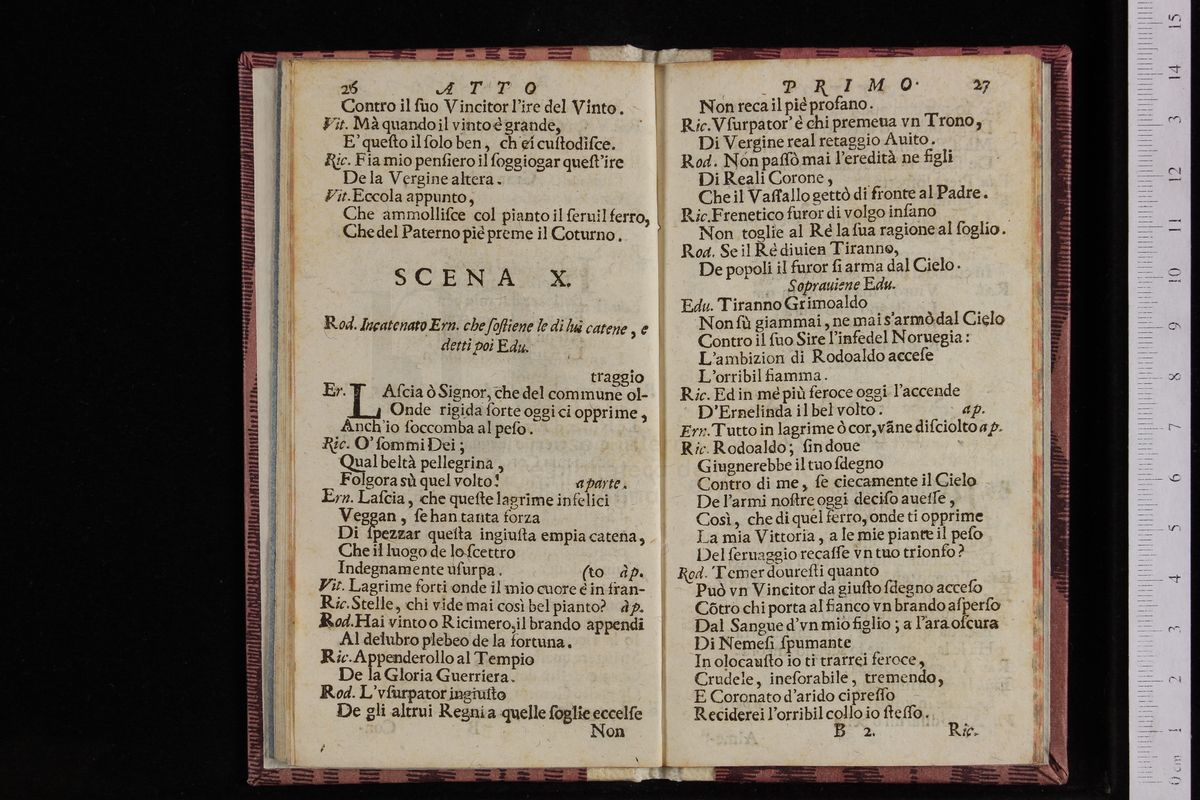 26 ATTO
Contro il ſuo Vincitor l'ire del Vinto.
Vit. Mà quando il vinto è grande,
E' queſto il ſolo ben, ch'ei cuſtodiſce.
Ric. Fia mio penſiero il ſoggiogar queſt'ire
De la Vergine altera.
Vit. Eccola appunto,
Che ammolliſce col pianto il ſeruil ferro,
Che del Paterno piè preme il Coturno.
SCENA X.
Rod. Incatenato Ern. che ſoſtiene le di lui catene, e
detti poi Edu.
traggio
Er. LAſcia ò Signor, che del commune ol-
Onde rigida ſorte oggi ci opprime,
Anch'io ſoccomba al peſo.
Ric. O' ſommi Dei;
Qual beltà pellegrina,
Folgora sù quel volto! a parte.
Ern. Laſcia, che queſte lagrime infelici
Veggan, ſe han tanta forza
Di ſpezzar queſta ingiuſta empia catena,
Che il luogo de lo ſcettro
Indegnamente vſurpa. (to àp.
Vit. Lagrime forti onde il mio cuore è in fran-
Ric. Stelle, chi vide mai così bel pianto? àp.
Rod. Hai vinto o Ricimero, il brando appendi
Al delubro plebeo de la fortuna.
Ric. Appenderollo al Tempio
De la Gloria Guerriera.
Rod. L'vſurpator ingiuſto
De gli altrui Regni a quelle ſoglie eccelſe
Non
PRIMO. 27
Non reca il piè profano.
Ric. Vſurpator' è chi premeua vn Trono,
Di Vergine real retaggio Auito.
Rod. Non paſsò mai l'eredità ne figli
Di Reali Corone,
Che il Vaſſallo gettò di fronte al Padre.
Ric. Frenetico furor di volgo inſano
Non toglie al Rè la ſua ragione al ſoglio.
Rod. Se il Rè diuien Tiranno,
De popoli il furor ſi arma dal Cielo.
Soprauiene Edu.
Edu. Tiranno Grimoaldo
Non fù giammai, ne mai s'armò dal Cielo
Contro il ſuo Sire l'infedel Noruegia:
L'ambizion di Rodoaldo acceſe
L'orribil fiamma.
Ric. Ed in mè più feroce oggi l'accende
D'Ernelinda il bel volto. ap.
Ern. Tutto in lagrime ò cor, vãne diſciolto ap.
Ric. Rodoaldo; fin doue
Giugnerebbe il tuo ſdegno
Contro di me, ſe ciecamente il Cielo
De l'armi noſtre oggi deciſo aueſſe,
Così, che di quel ferro, onde ti opprime
La mia Vittoria, a le mie piante il peſo
Del ſeruaggio recaſſe vn tuo trionfo?
Rod. Temer doureſti quanto
Può vn Vincitor da giuſto ſdegno acceſo
Cõtro chi porta al fianco vn brando aſperſo
Dal Sangue d'vn mio figlio; a l'ara oſcura
Di Nemeſi ſpumante
In olocauſto io ti trarrei feroce,
Crudele, ineſorabile, tremendo,
E Coronato d'arido cipreſſo
Reciderei l'orribil collo io ſteſſo.
B 2. Ric.
0 cm 1 2 3 4 5 6 7 8 9 10 11 12 13 14 15